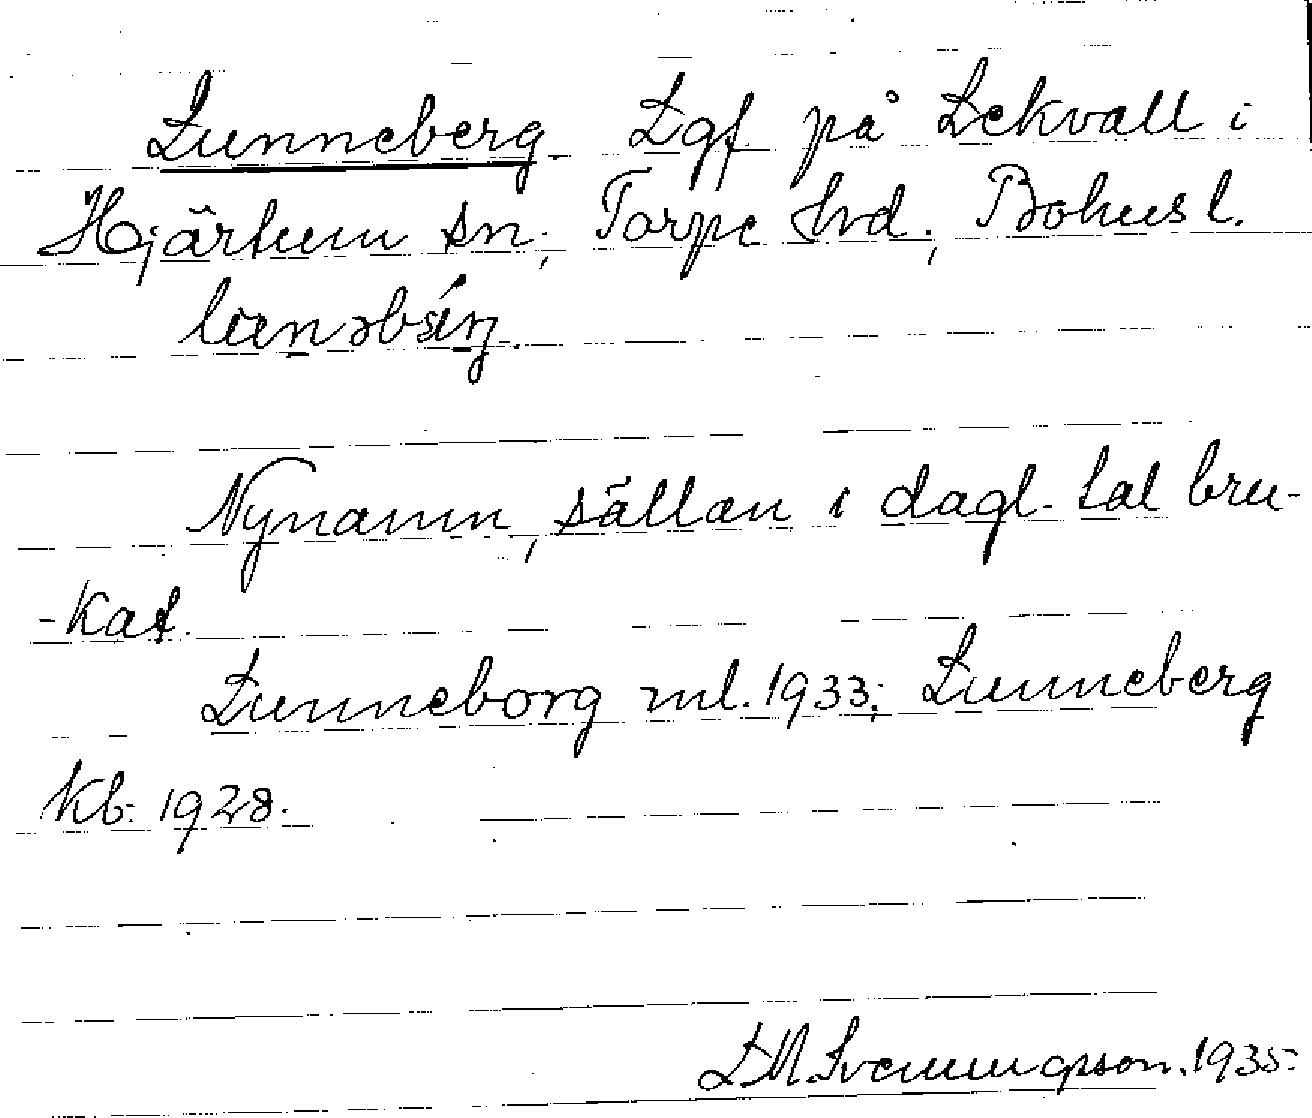 Lunneberg Lgf på Lekvall i
Hjärtum sn; Torpe hd; Bohusl.
Nynamn, sällan i dagl. tal bru-
-kat.
Lunneborg ml. 1933; Lunneberg
Kb. 1928.
L.M. Svenningsson. 1935.